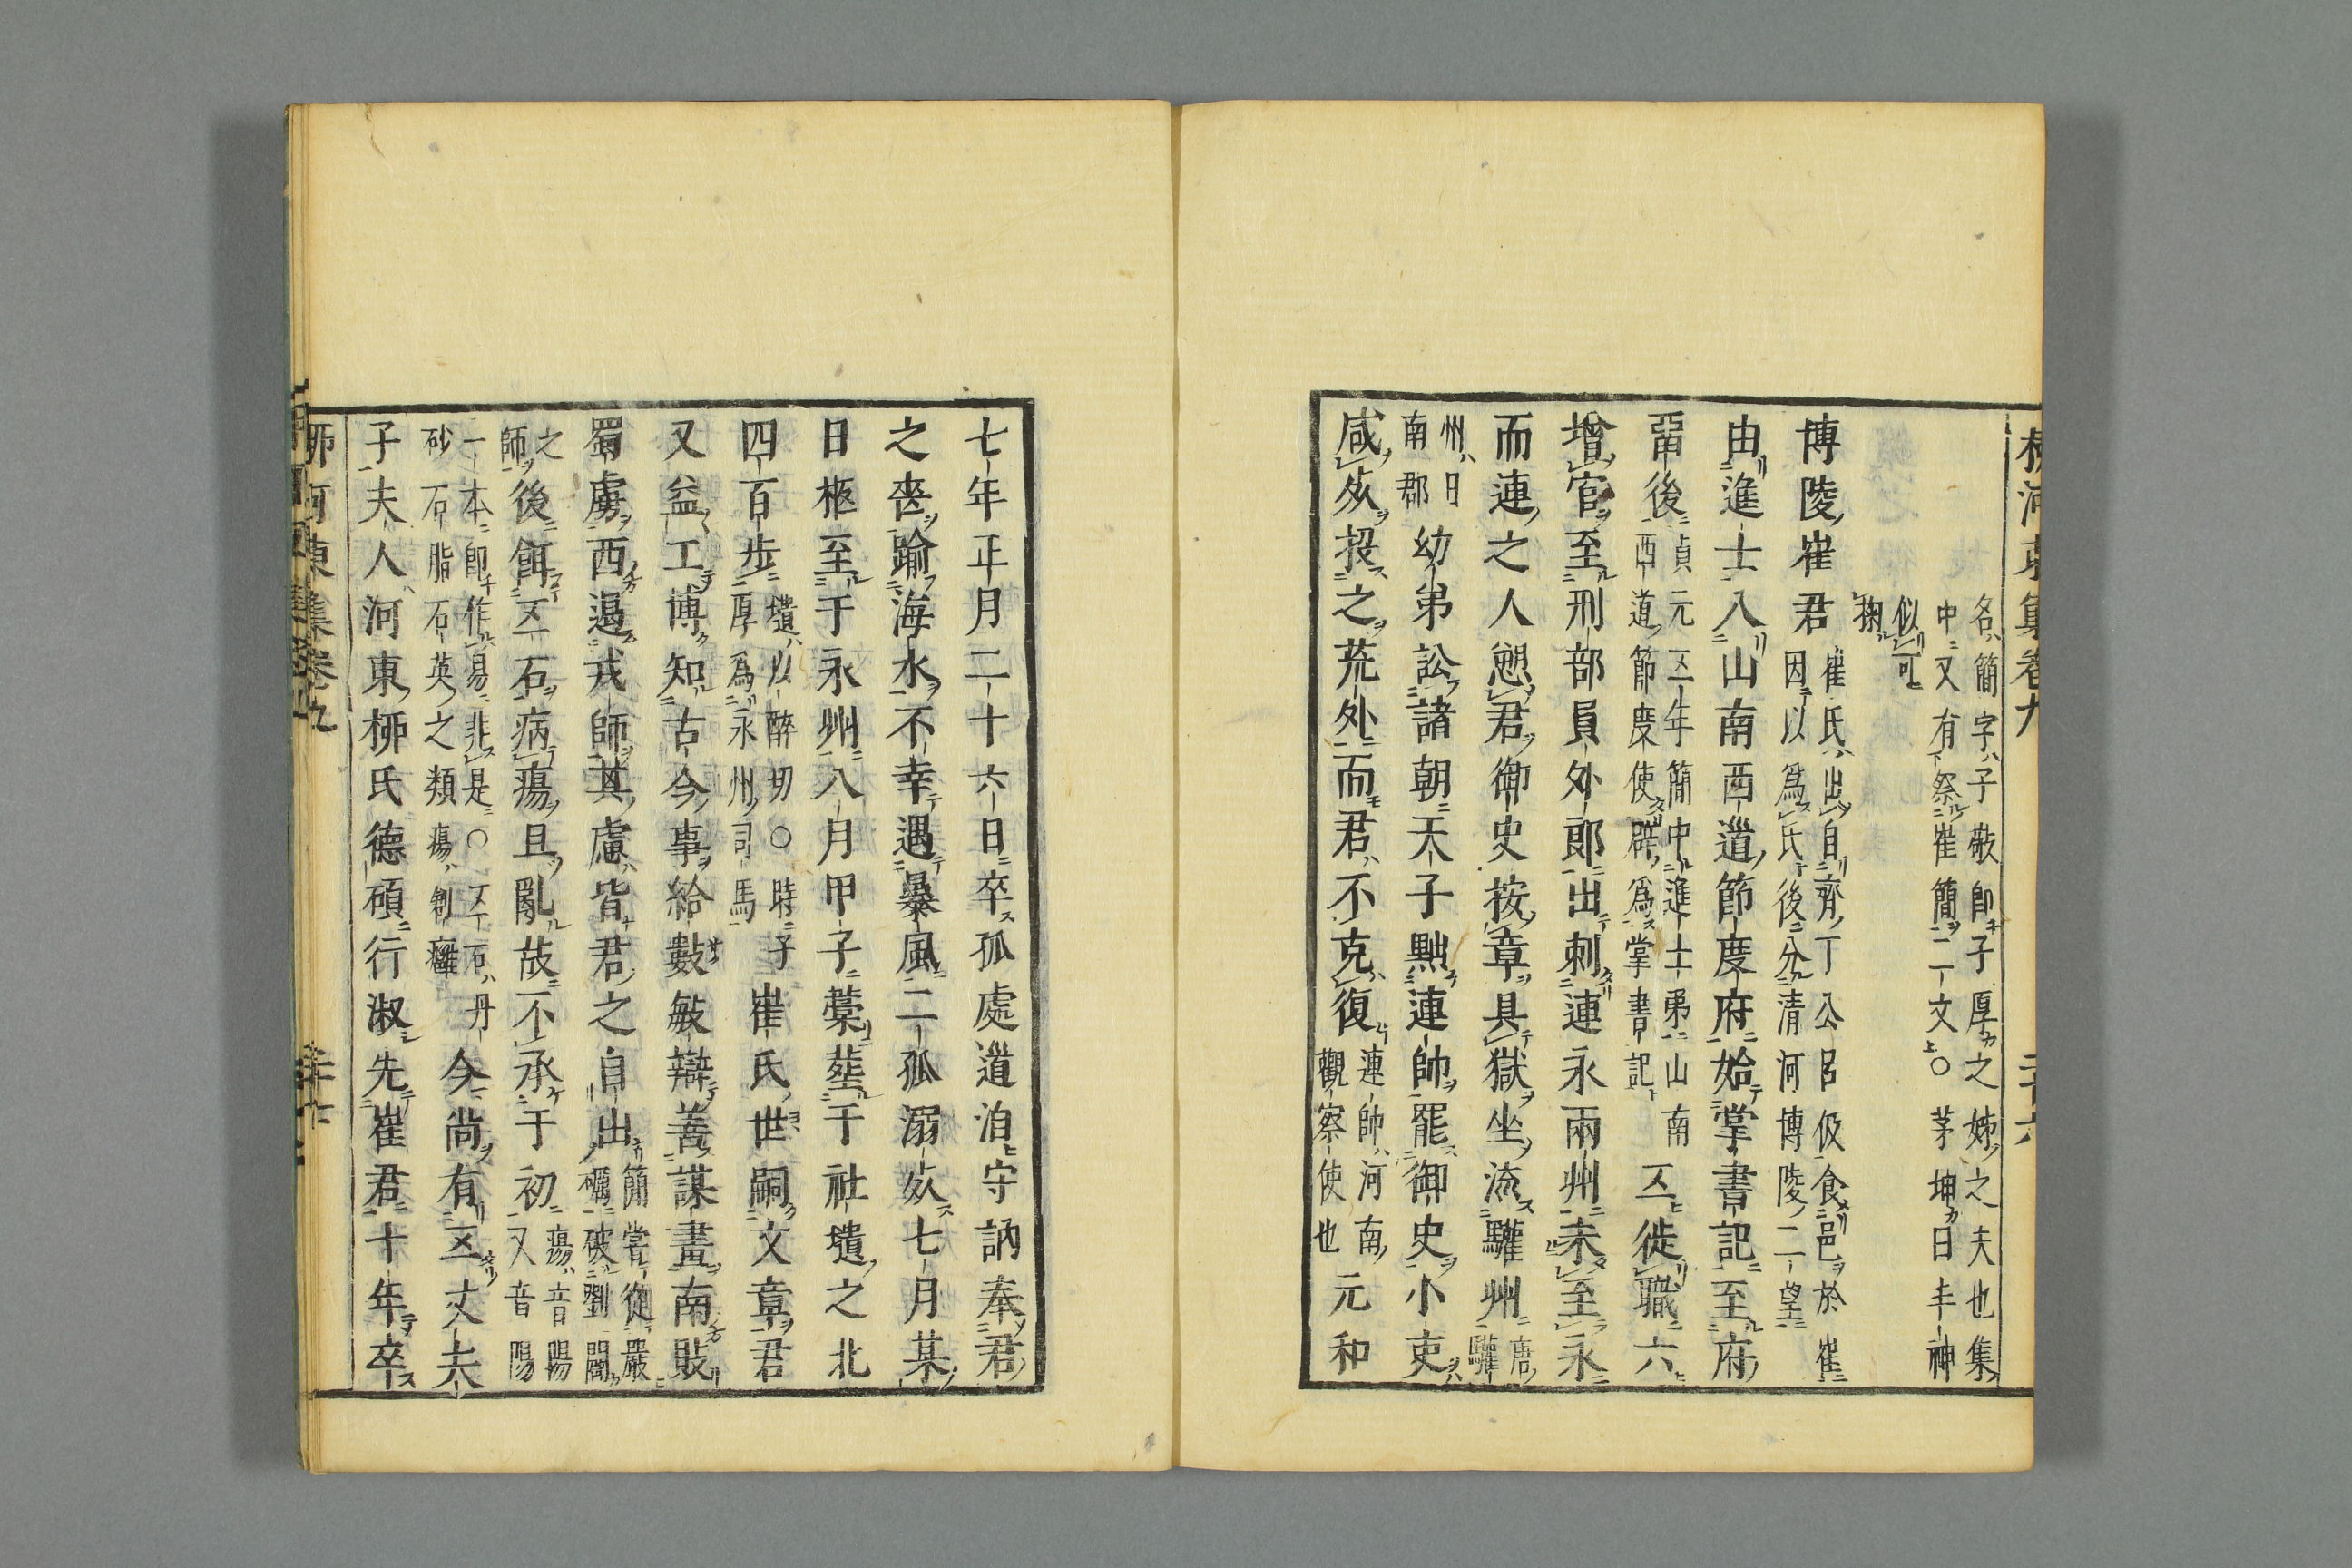 柳河東集卷九 三十六
名簡字子敬卽子厚之姊之夫也集
中又有祭崔簡二文○茅坤曰丰神
似可
掬
博陵崔君崔氏出自齊丁公呂伋食邑於崔
因以爲氏後分淸河博陵二望
由進士入山南西道節度府始掌書記至府
畱後貞元五年簡中進士弟山南
西道節度使辟爲掌書記五徙職六
增官至刑部員外郎出刺連永兩州未至永
而連之人愬君御史按章具獄坐流驩州唐驩
州日
南郡幼弟訟諸朝天子黜連帥罷御史小吏
咸死投之荒外而君不克復連帥河南
觀察使也元和
七年正月二十六日卒孤處道泊守訥奉君
之喪踰海水不幸遇暴風二孤溺死七月某
日柩至于永州八月甲子藁塟于社壝之北
四百步壝以醉切○時子
厚爲永州司馬崔氏世嗣文章君
又益工博知古今事給數敏辯善謀畫南敗
蜀虜西遏戎師其慮皆君之自出簡嘗從嚴
礪破劉闢
之
師後餌五石病瘍且亂故不承于初瘍音陽
又音陽
一本卽作易非是○五石丹
砂石脂石英之類瘍創癰今尚有五丈夫
子夫人河東柳氏德碩行淑先崔君十年卒
柳河東集卷九 三十七